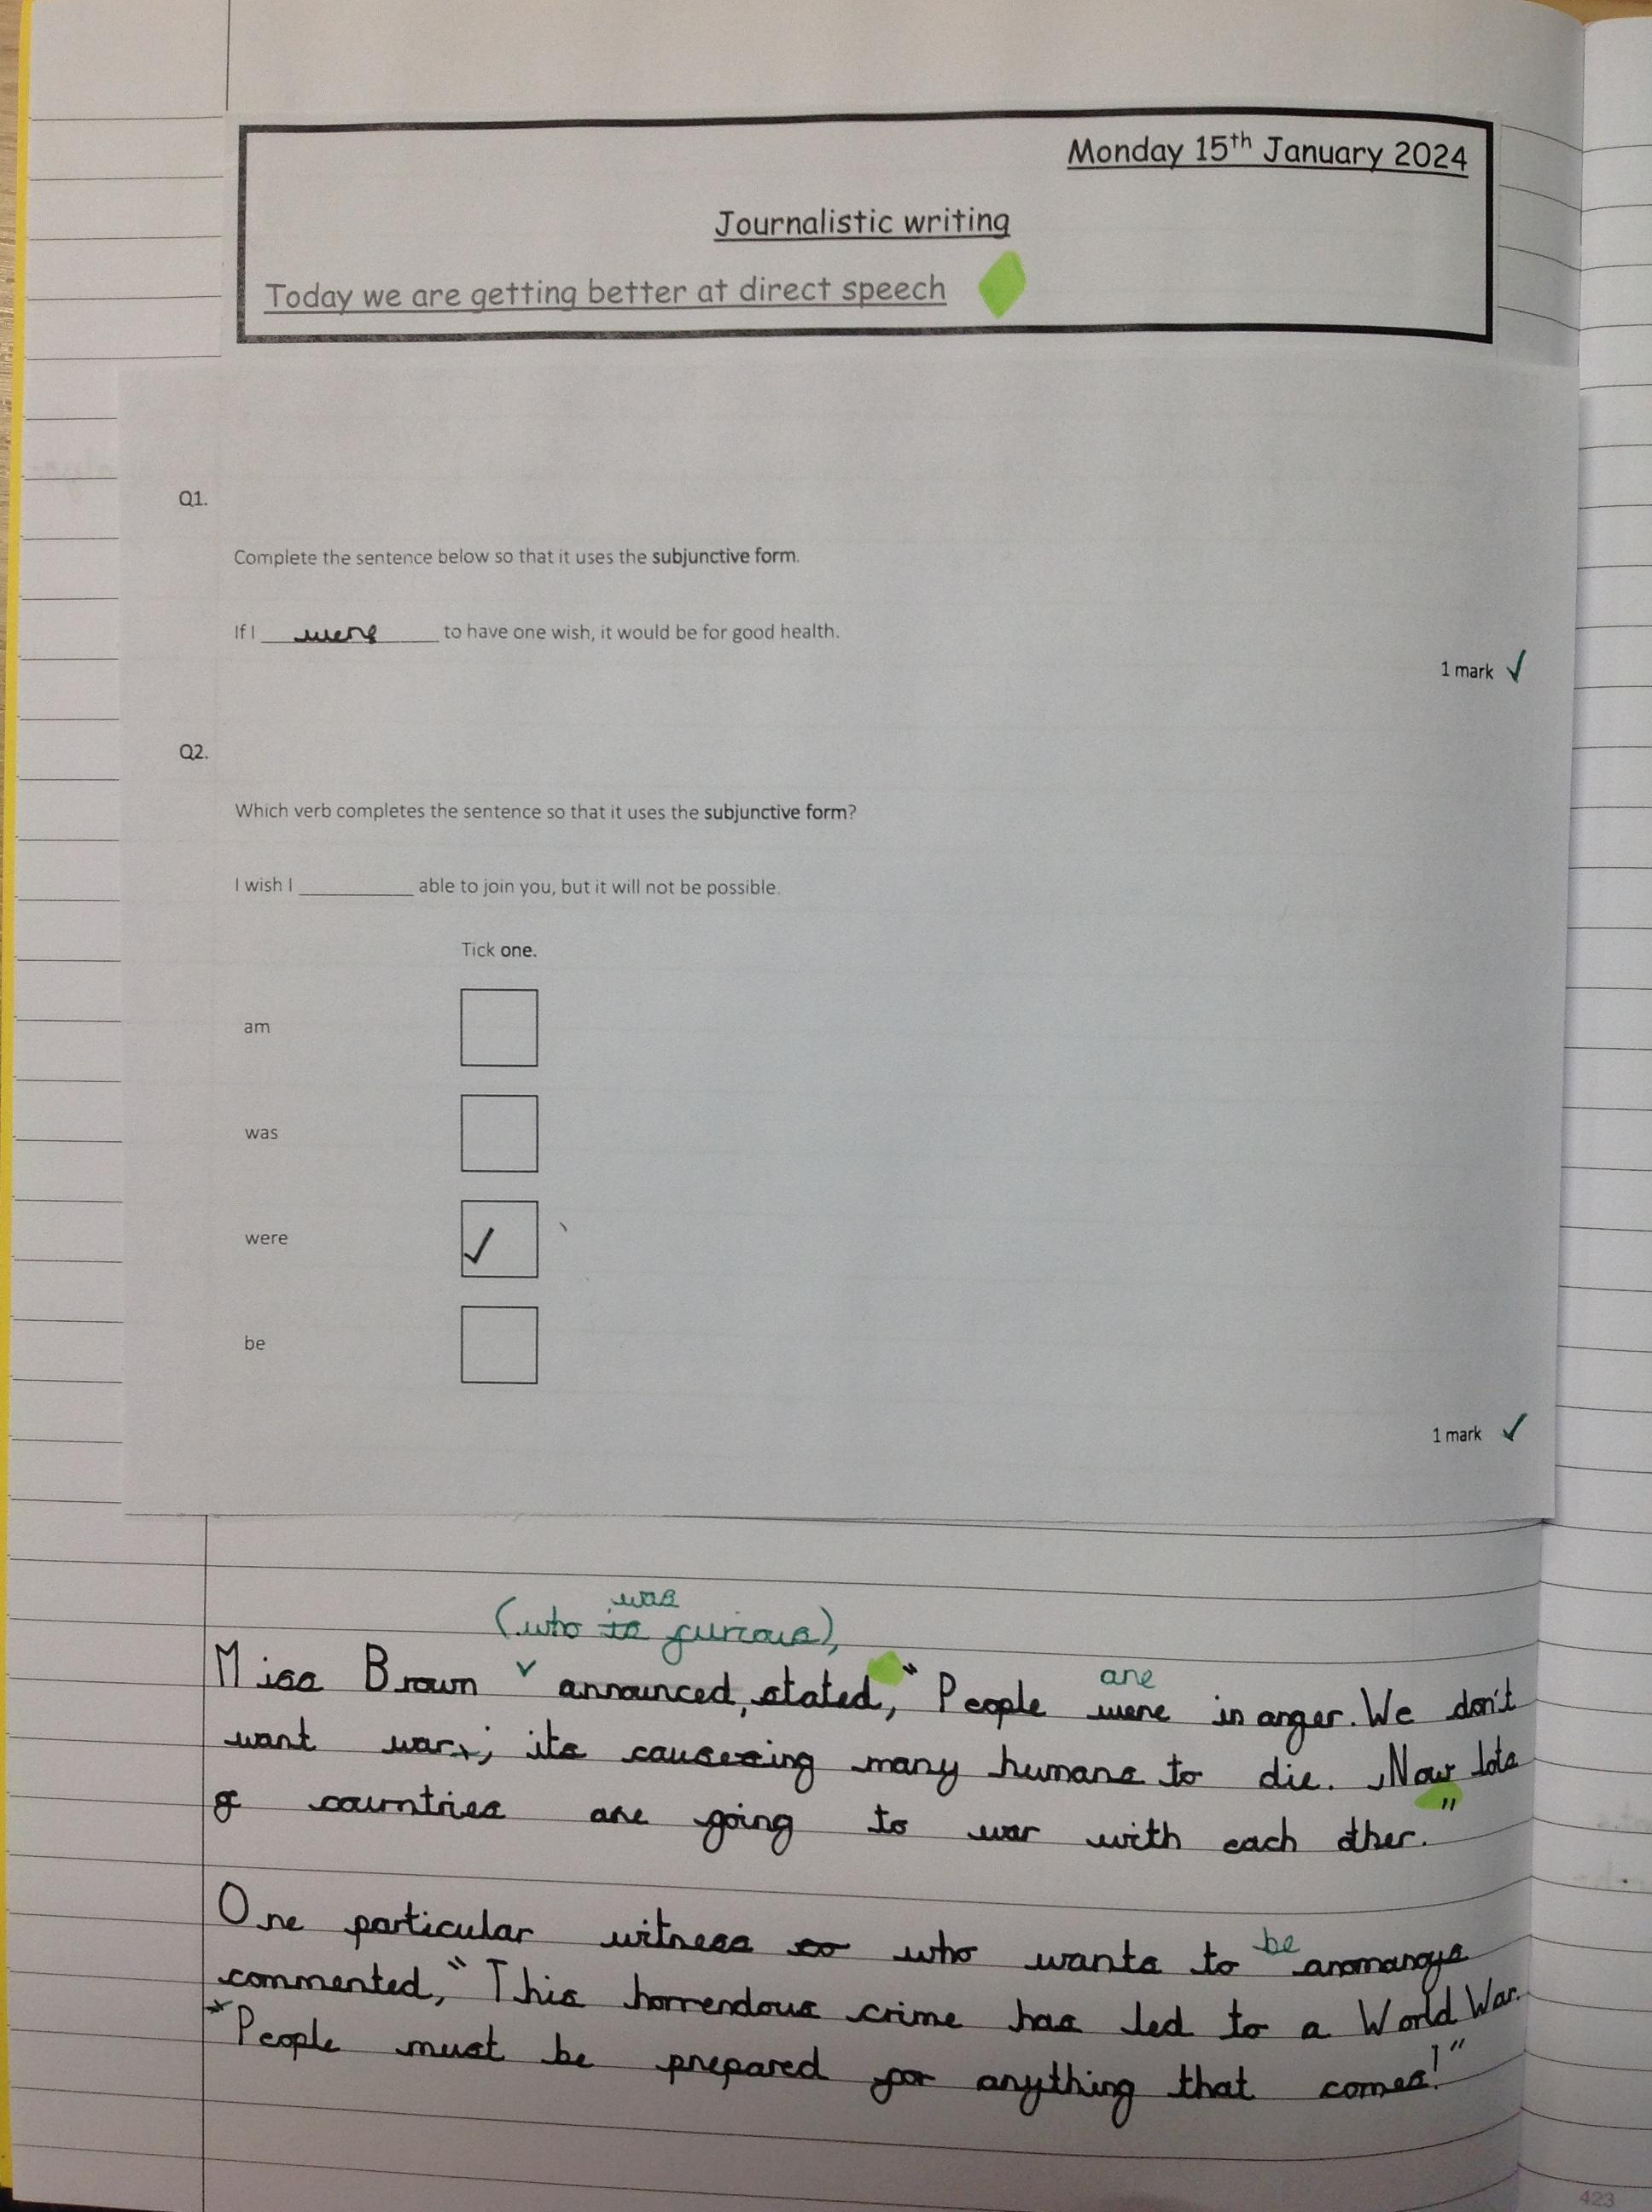 Monday 15th January 2024
Journalistic writing
Today we are getting better at direct speech
Q1.
Complete the sentence below so that it uses the subjunctive form.
If I were to have one wish, it would be for good health.
1 mark ✓
Q2.
Which verb completes the sentence so that it uses the subjunctive form?
I wish I __________ able to join you, but it will not be possible.
Tick one.
am
was
were ✓
be
1 mark ✓
was
(who is furious),
Miss Brown announced, stated, " People were in anger. We don't
are
want war; its causeing many humans to die. Now lots
of countries are going to war with each other."
One particular witness so who wants to be anomanys
commented, " This horrendous crime has led to a World War.
"People must be prepared for anything that comes!"
423